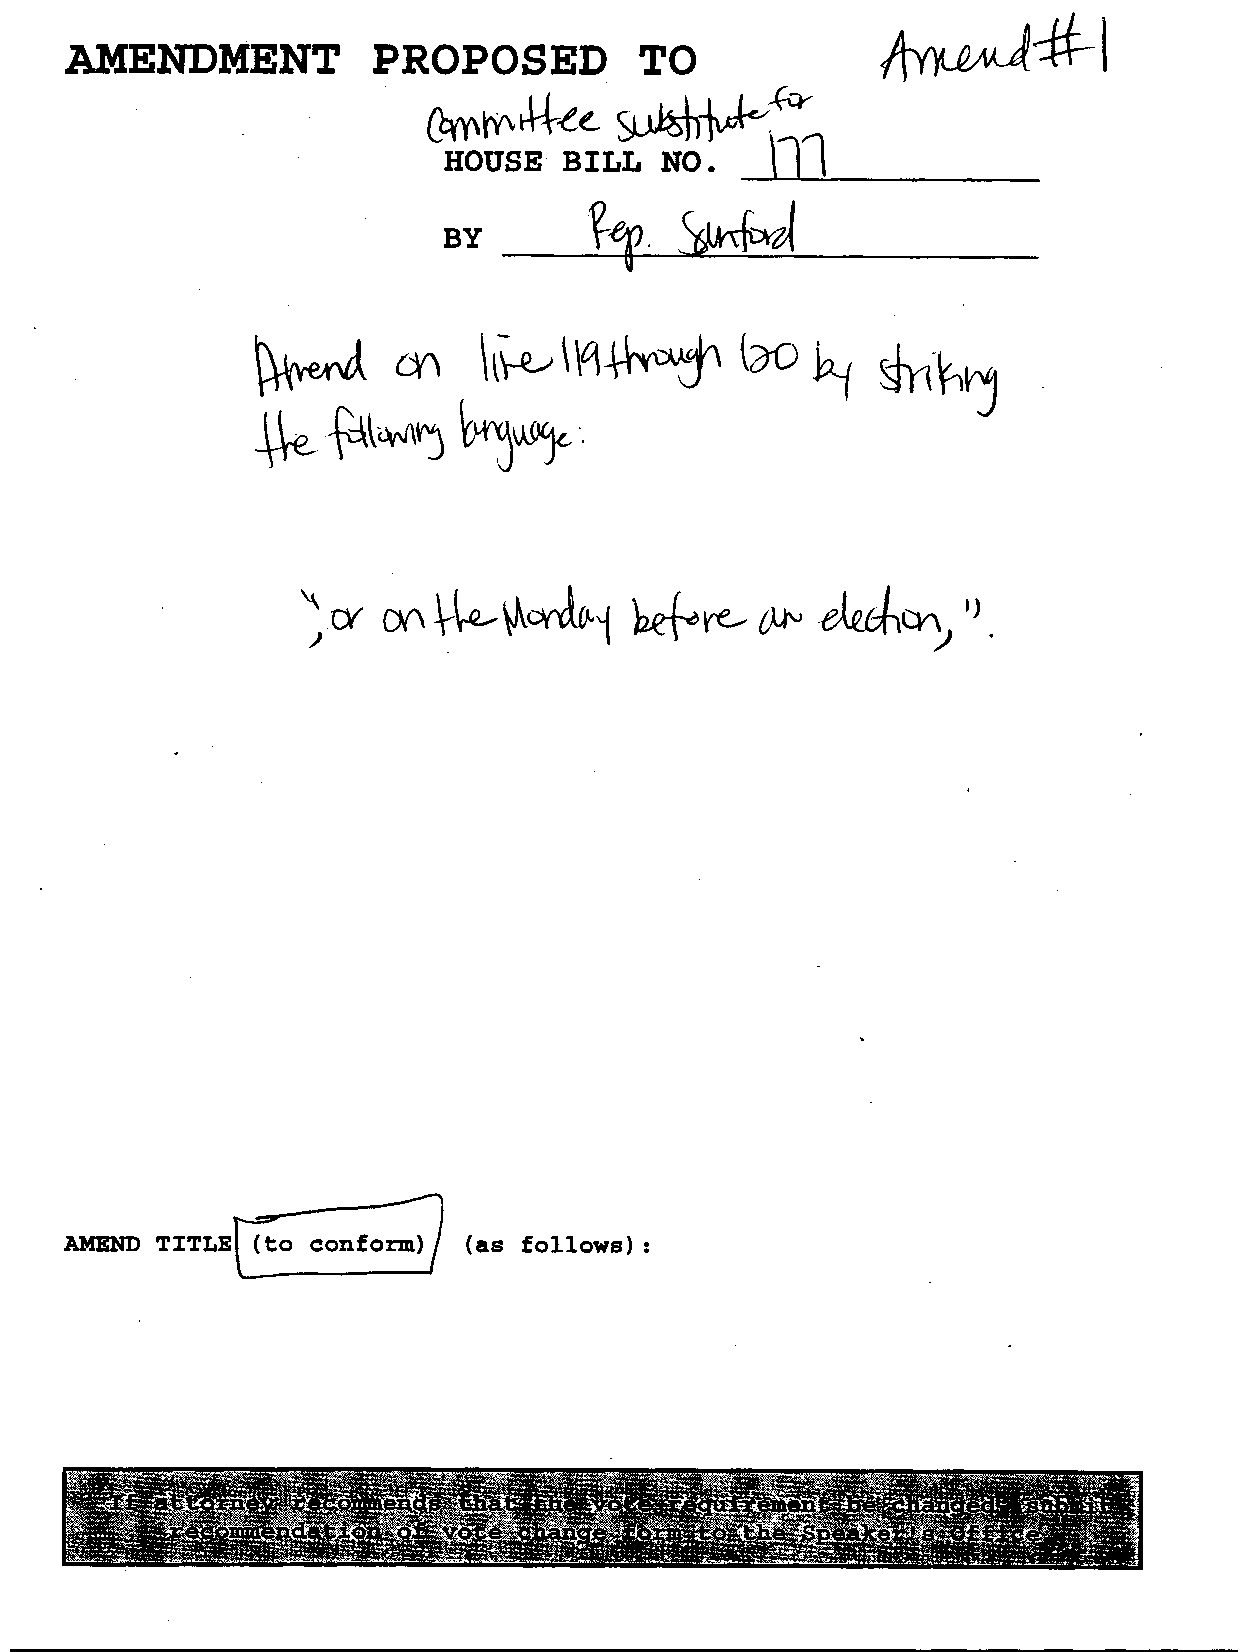 AMENDMENT PROPOSED TO
Amend #1
Committee substitute for
HOUSE BILL NO. 177
BY Rep. Sanford
Amend on line 119 through 120 by striking
the following language:
", or on the Monday before an election,".
AMEND TITLE (to conform) (as follows):
If attorney recommends that the vote requirement be changed, submit
recommendation of vote change form to the Speaker's Office